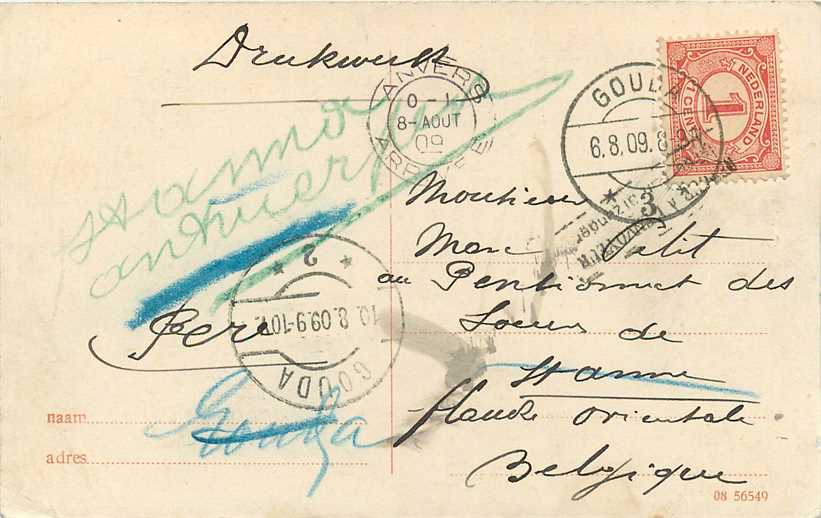 Drukwerk
NEDERLAND
1
CENT
GOUDA
6.8.09.
3
ANVERS
8-AOUT
09
St anna
antwerpen
Monsieur
Marc Petit
au Pensionnat des
Soeurs de
St anne
flandre orientale
Belgique
2
10.8.09.9-10V
GOUDA
Pere
Gouda
naam
adres
08 56549